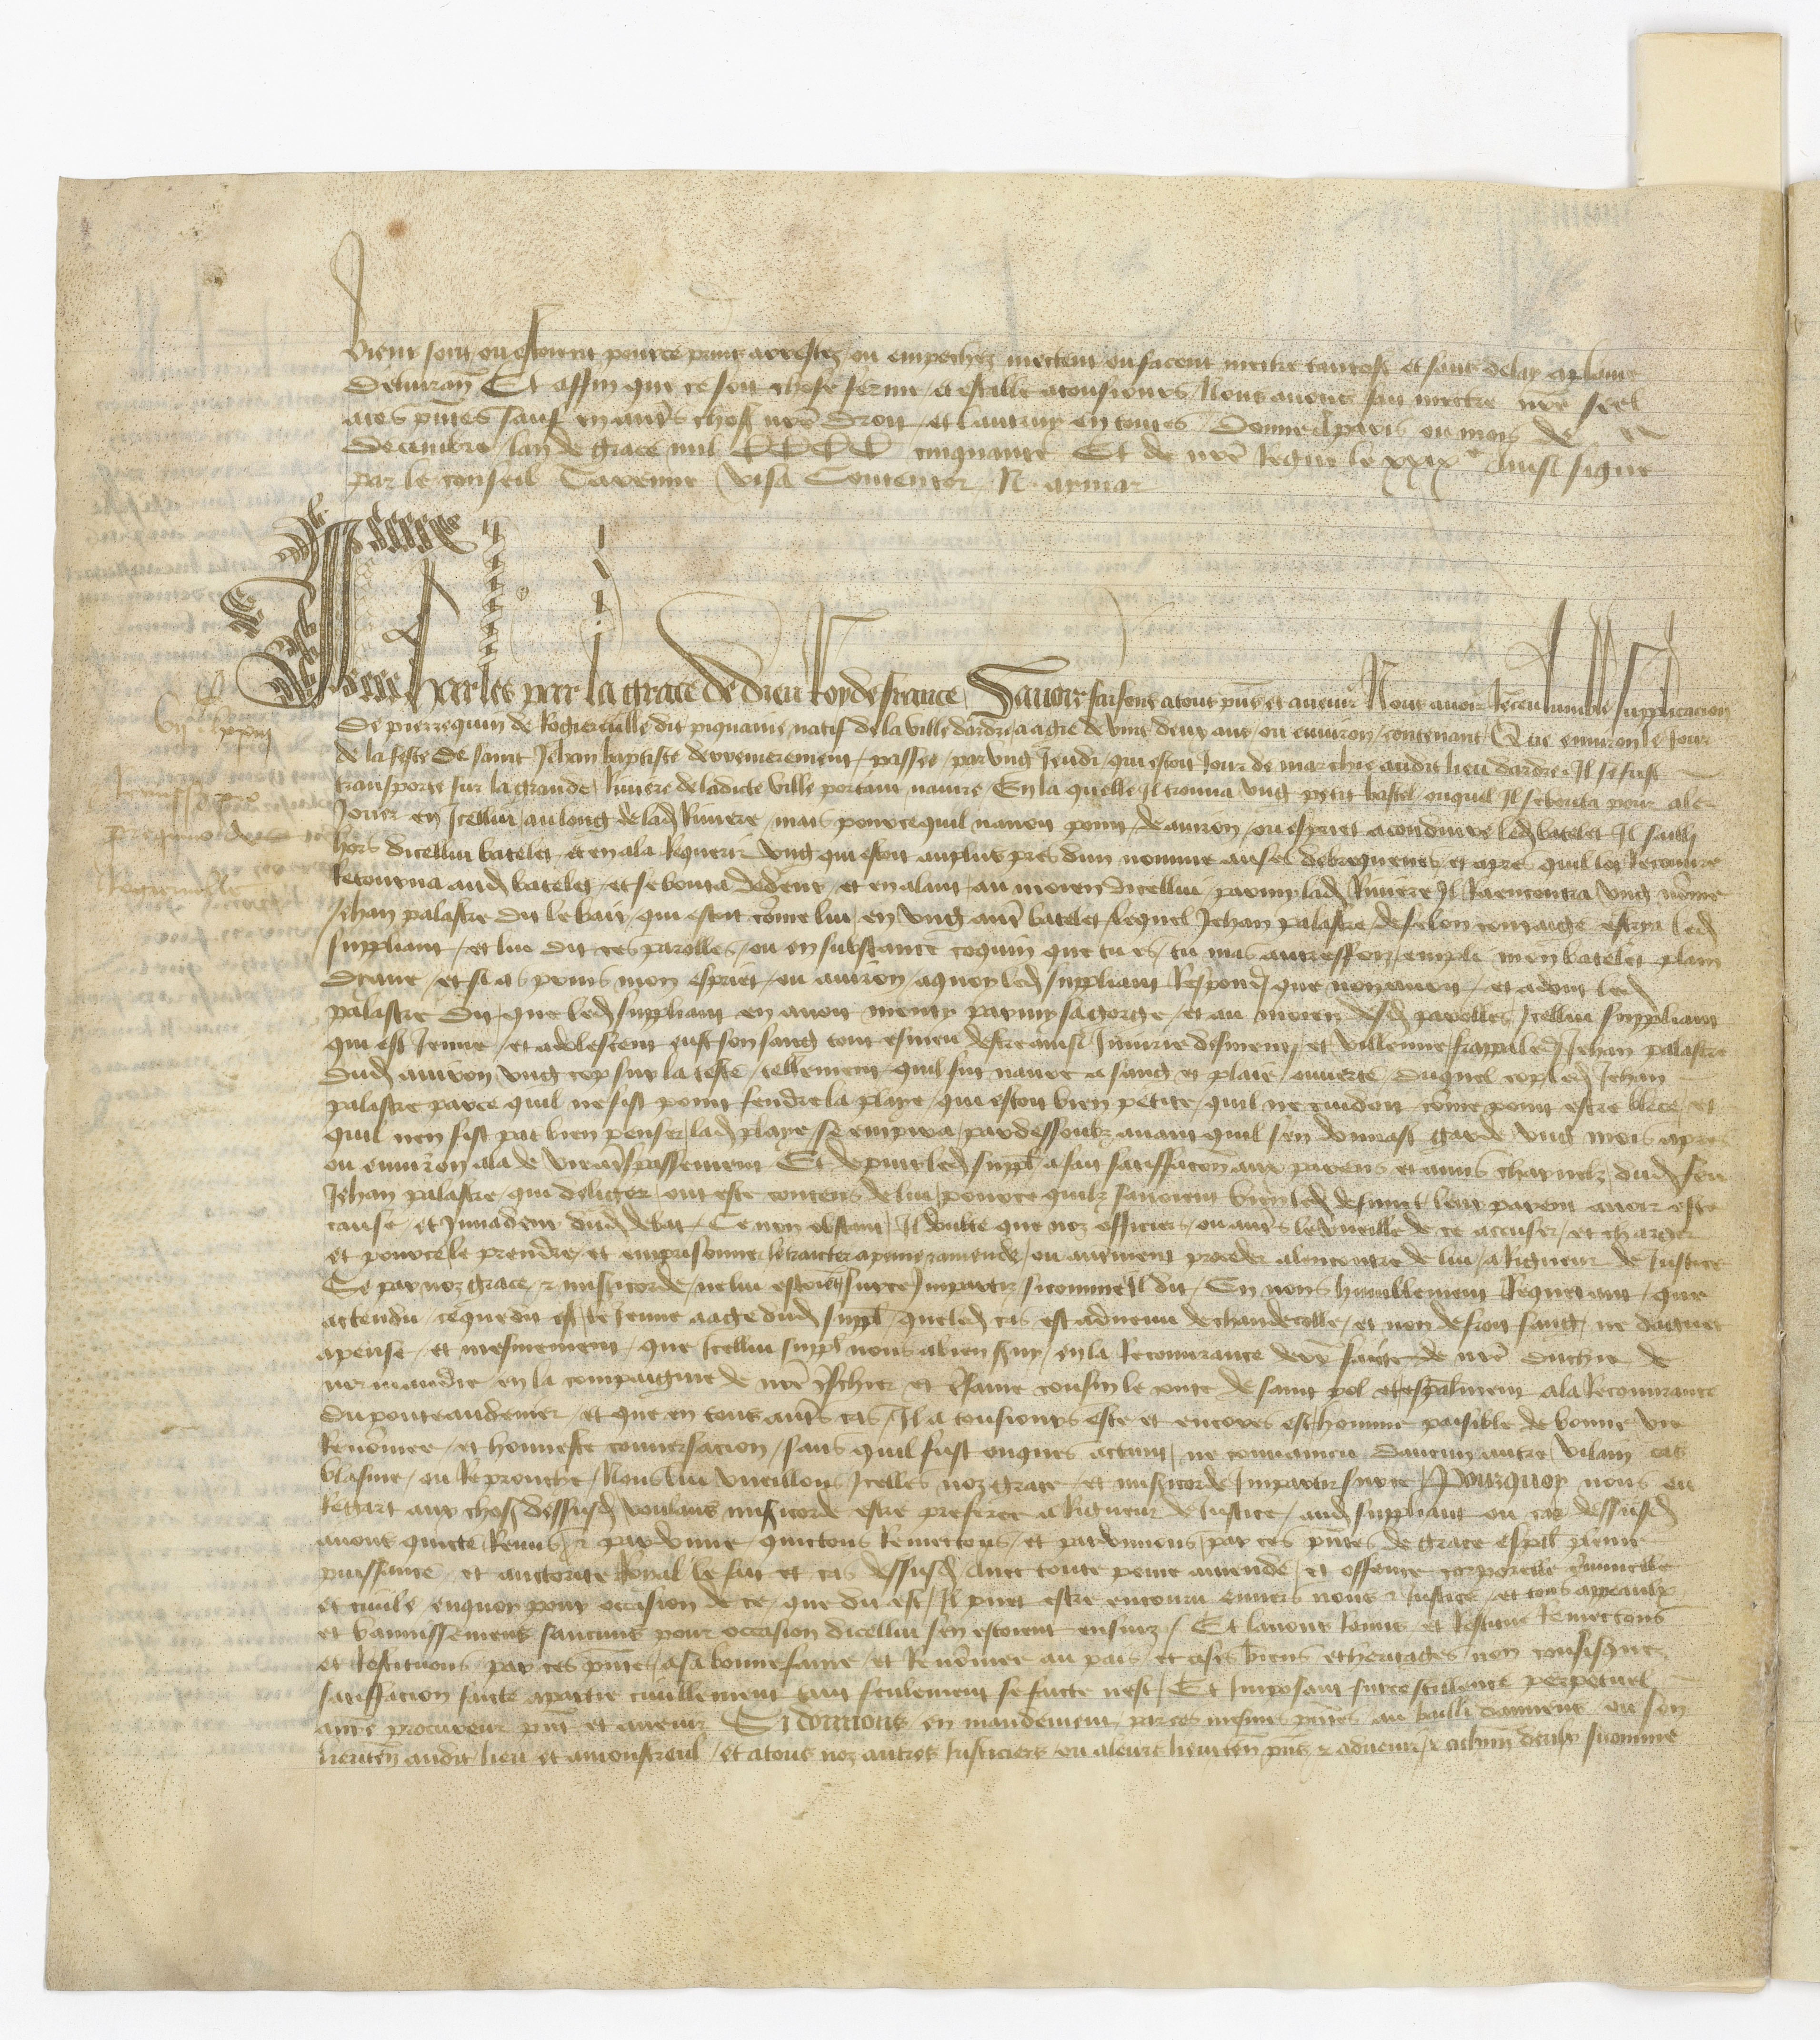 biens sont ou estoient pource prins arrestez ou empeschez mectent ou facent mectre tantost et sans delay a plaine
delivrance Et affin que ce soit chose ferme et estable a tousiours Nous avons fait mectre nre seel
a ces pntes sauf en autres choses nre droit et lautruy en toutes Donne a paris ou mois de
decembre lan de grace mil CCCC cinquante Et de nre regne le xxixe Ainsi signe
par le conseil Tavenne Visa Contentor N. aymar
Charles par la grace de dieu Roy de france Savoir faisons a tous pns et avenir Nous avoir receu lumble supplicacion
De pierrequin de Rogierville dit piquame natif de la ville dardre aagie de vint deux ans ou environ contenant Que environ le jour
de la feste de saint Jehan baptiste derrenierement passee par ung jeudi qui estoit jour de marchie audit lieu dardre Il se fust
transporte sur la grande Riviere de ladicte ville portant navire En la quelle il trouva ung petit bastel ouquel il se bouta pour aler
Jouer en Icellui au long de lad Riviere mais pource quil navoit point de aviron ou espriet a conduire led batelet Il sailli
hors dicellui batelet et en ala requerir ung qui estoit au plus pres dun nomme ansel debrequenes et apres quil lot recouvre
Retourna aud batelet et se bouta dedens et en alant au moien dicellui parmy lad Riviere Il Raencontra ung nome
Jehan palastre dit le bair qui estoit come lui en ung autre batelet lequel Jehan palastre de felon couraige escrya led
suppliant et lui dit ces parolles ou en substance coquin que tu es tu mas autreffoiz empli mon batelet plain
deaue et si as prins mon espriet ou aviron a quoy led suppliant Respondi que non avoit et adont led
palastre dit que led suppliant en avoit menty parmy sa gorge et au moien desd parolles Icellui suppliant
qui est Jeune et adolescent eust son sang tout esmeu destre ainsi Injurie desmenty et villenne frappa led Jehan palastre
dud aviron ung cop sur la teste tellement quil fut navre a sang et plaie ouverte duquel cop led Jehan
palastre parce quil ne fist point fendre la playe qui estoit bien petite quil ne cuidoit come point estre blece et
quil nen fist pas bien penser lad playe se empira pardessoubz avant quil sen donnast garde ung mois apres
ou environ ala de vie a trespassement Et depuis led suppl a fait satisfacion aux parens et amis charnelz dud feu
Jehan palastre qui de legier ont este contens de lui pource quilz savoient bien led deffunt leur parent avoir este
cause et Invadeur dud debat Ce non obstant Il doubte que noz officiers ou autres le vueille de ce accuser et charger
et pource le prendre et emprisonner le traicter a peine ramende ou autrement proceder alencontre de lui a Rigueur de Justice
Se par noz grace & misericorde ne lui estoient sur ce Impartiz sicomme Il dit En nous humblement Requerant que
actendu ce que dit est le jeune aage dud suppl que led cas est advenu de chaude colle et non de froit sang ne daguet
apense et mesmement que Icellui suppl nous a bien servy en la recouvrance derre faicte de nre duchie de
normandie en la compaignie de nre treschier et tresame cousin le conte de saint pol et especialment a la Recouvrance
du ponteaudemer et que en tous autres cas Il a tousiours este et encores est homme paisible de bonne vie
Renomee et honneste conversacion sans quil fust onques actaint ne convaincu daucun autre vilain cas
blasme ou Reprouche Nous lui vueillons Icelles noz grace et misericorde Impartir sur ce Pourquoy nous eu
Regart aux choses dessusd voulans misericorde estre preferee a Rigueur de Justice aud suppliant ou cas dessusd
avons quicte Remis & pardonne quictons Remectons et pardonnons par ces pntes de grace espal plaine
puissance et auctorite Royal le fait et cas dessusd Avec toute peine amende et offence corporelle criminelle
et civile en quoy pour occasion de ce que dit est Il puet estre encouru envers nous & Justice et tous appeaulx
et bannissemens saucuns pour occasion dicellui sen estoient ensuiz Et lavons Remis et Restitue Remectons
et Restituons par ces pntes a sa bonne fame et Renomee au pais et a ses biens et heritages non confisquez
satisfacion faicte a partie civillement tant seulement se faicte nest Et Imposant sur ce scillence perpetuel
a nre procureur pnt et avenir Si donnons en mandement par ces mesmes pntes au bailli damiens ou son
lieuten audit lieu et a monstreul et a tous noz autres Justiciers ou a leurs lieuten pns & advenir & a chun deulx si comme